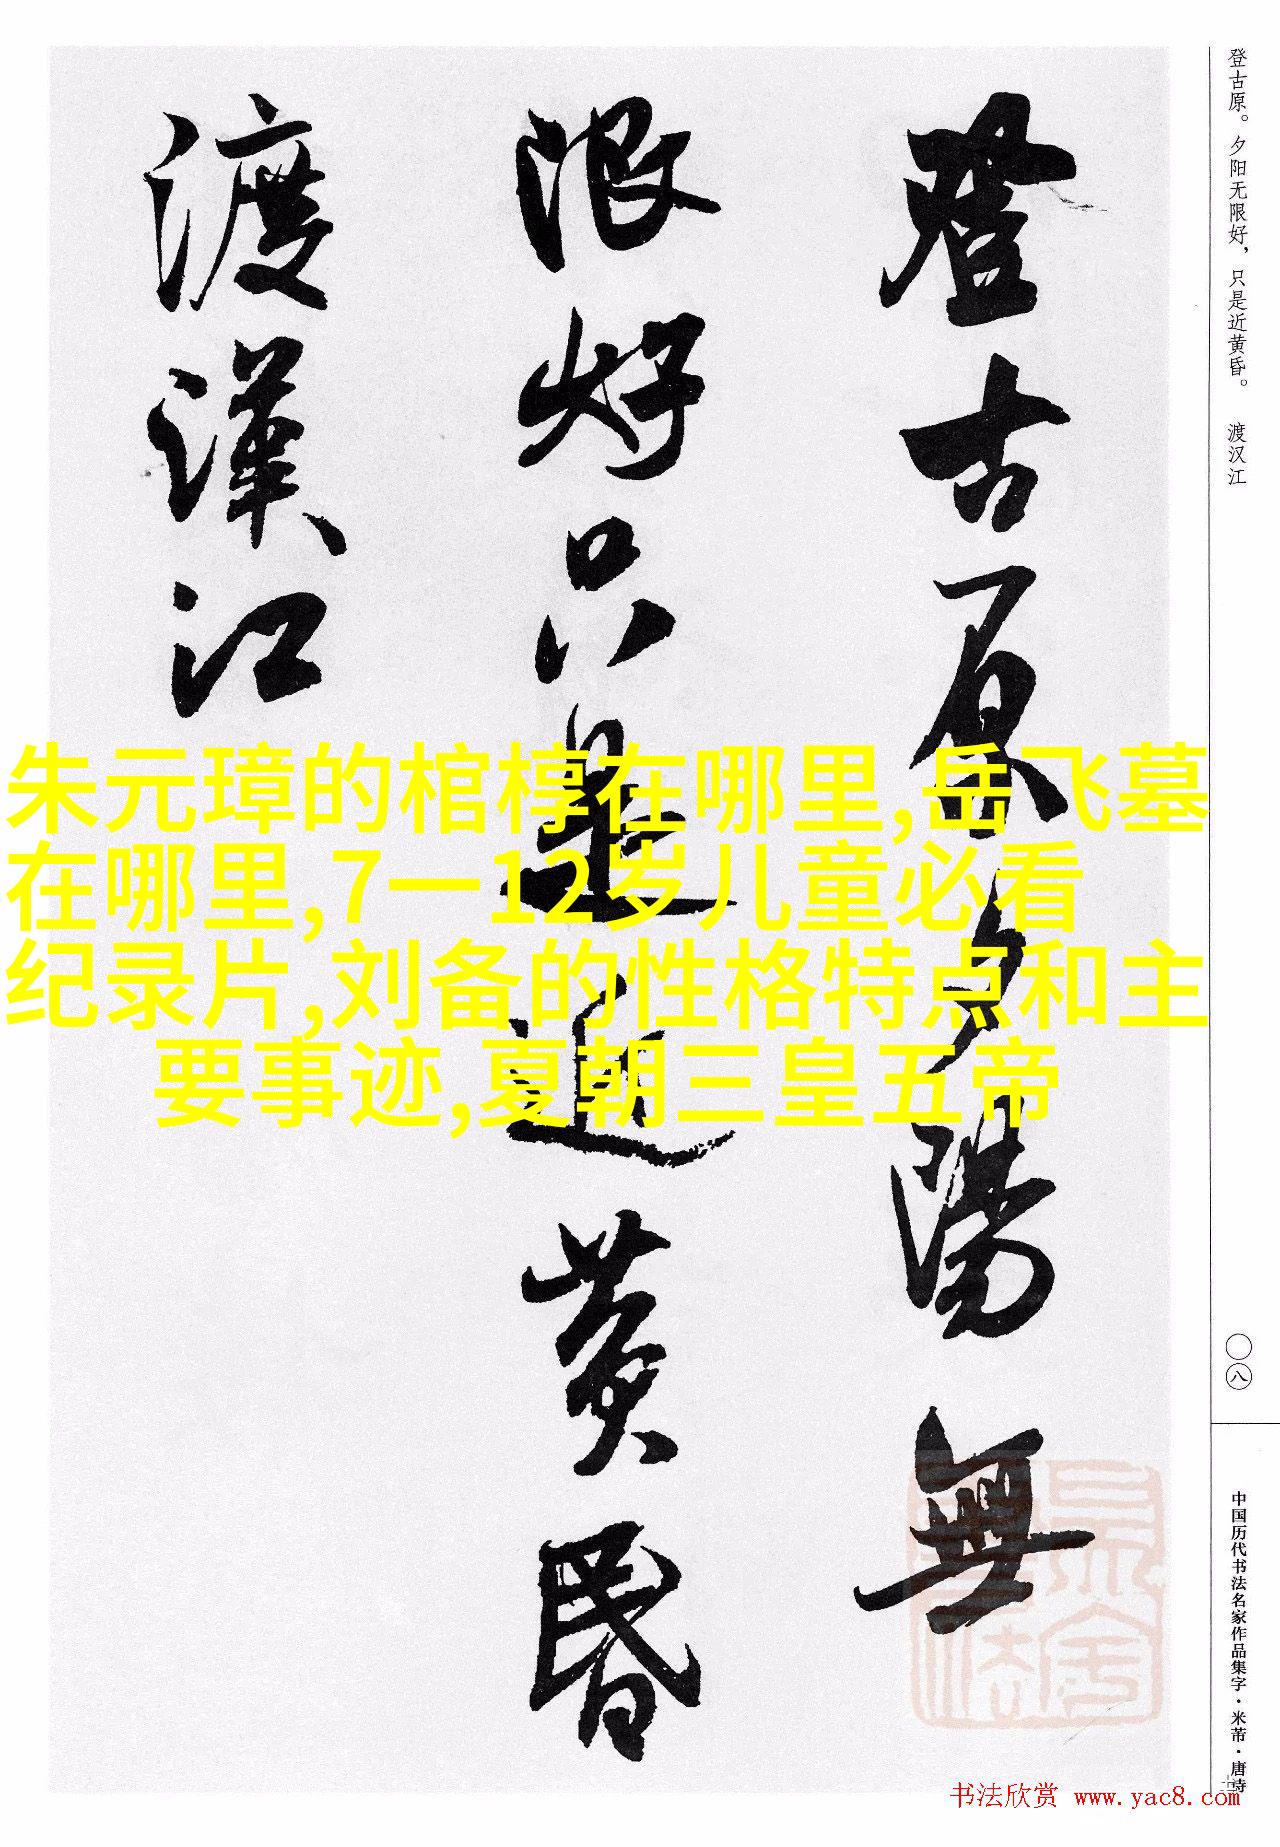 登古原。夕阳无限好，只是近黄昏。 渡汉江
登古原夕陽無
限好只是近黄昏
渡漢江
朱元璋的棺椁在哪里,岳飞墓
在哪里,7一12岁儿童必看
纪录片,刘备的性格特点和主
要事迹,夏朝三皇五帝
〇八
中国历代书法名家作品集字·米芾·唐诗
书法欣赏 www.yac8.com